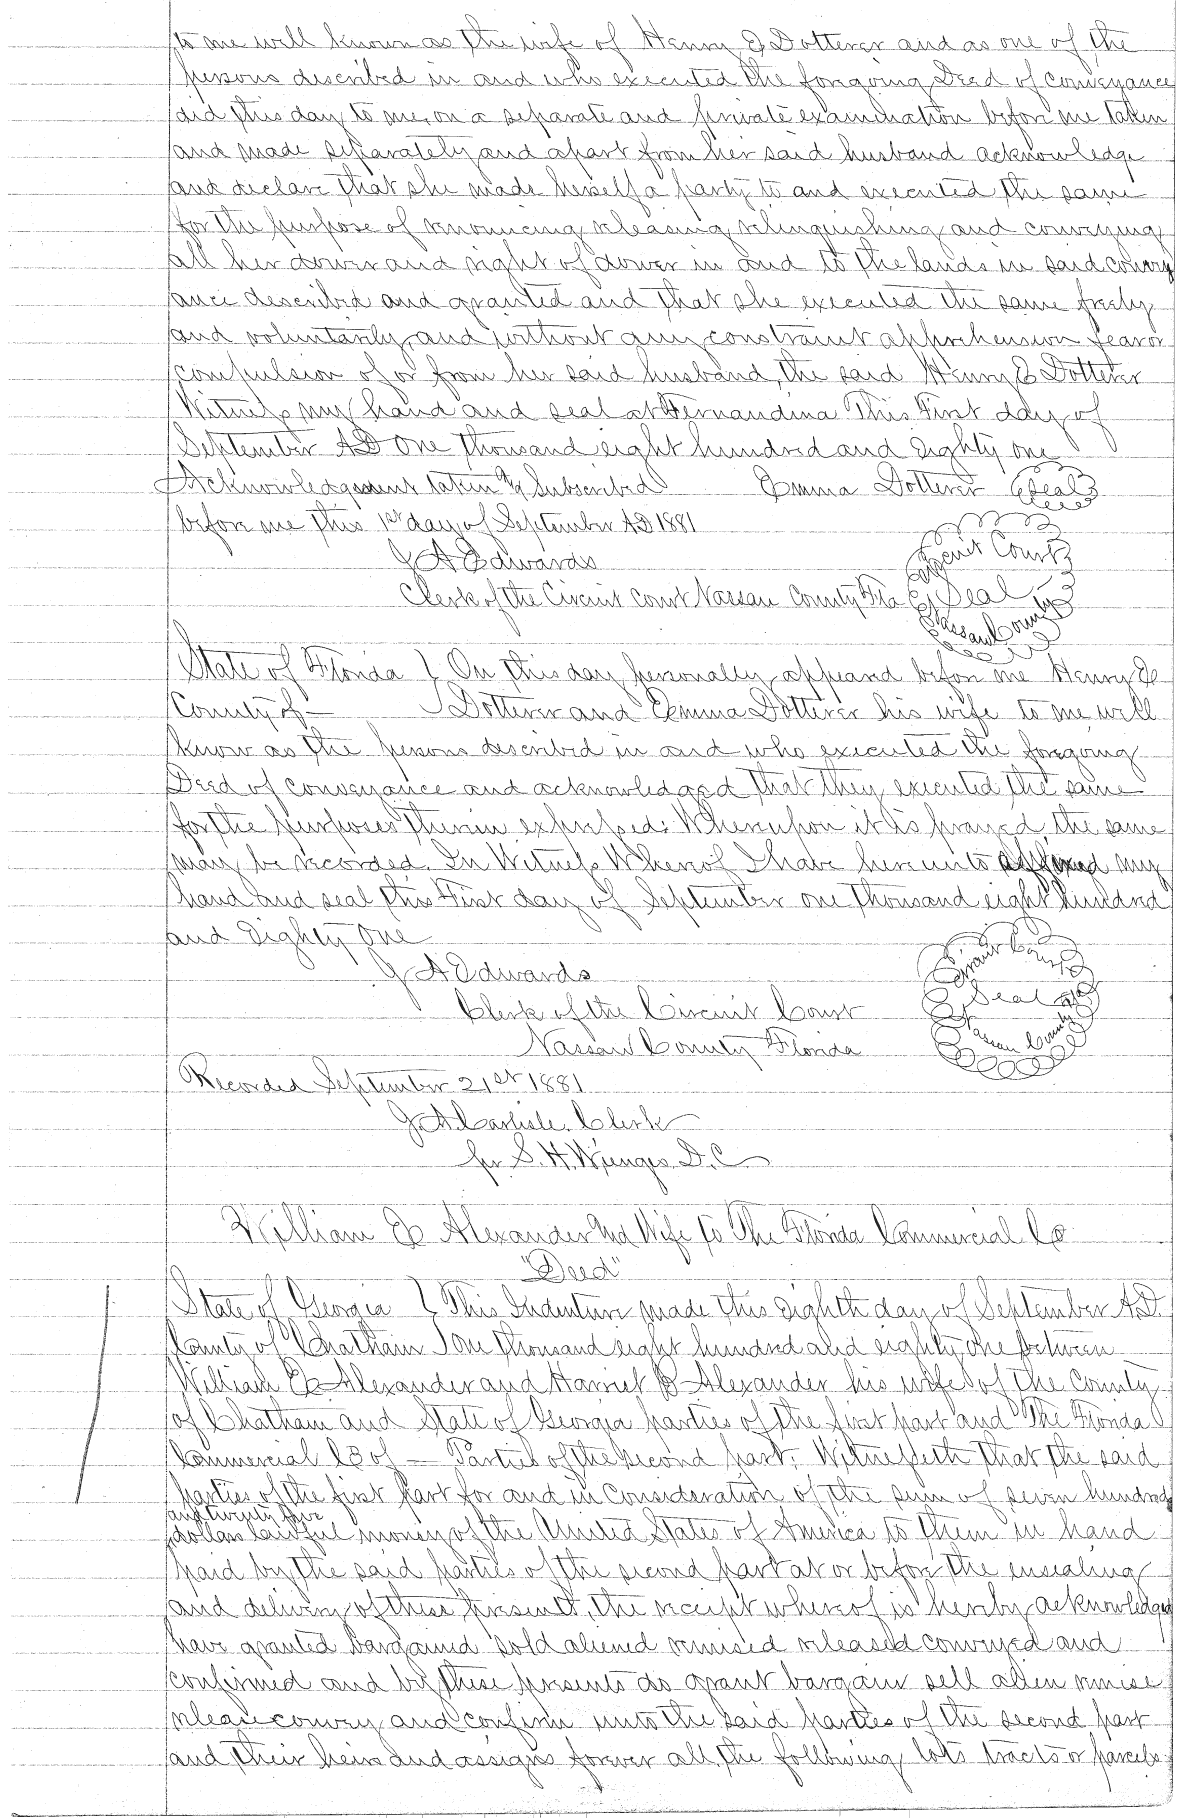 to me will known as the wife of Henry E Dotterer and as one of the
persons described in and who executed the foregoing Deed of conveyance
did this day to me, on a separate and private examination before me taken
and made separately and apart from her said husband acknowledge
and declare that she made herself a party to and executed the same
for the purpose of renouncing releasing relinquishing and conveying
all her dower and right of dower in and to the lands in said convey
ance described and granted and that she executed the same freely
and voluntarily, and without any constraint apprehension fear or
compulsion of or from her said husband, the said Henry E Dotterer
Witness my hand and seal at Fernandina This First day of
September AD One thousand eight hundred and Eighty one
Acknowledgement taken & Subscribed Emma Dotterer Seal
before me this 1st day of September AD 1881
J A Edwards
Clerk of the Circuit Court Nassau County Fla
Circuit Court
Seal
Nassau County
State of Florida } On this day personally appeared before me Henry E
County of — } Dotterer and Emma Dotterer his wife to me will
know as the persons described in and who executed the foregoing
Deed of conveyance and acknowledged that they executed the same
for the purposes therein expressed: Whereupon it is prayed the same
may be recorded. In Witness Whereof I have here unto affixed my
hand and seal this First day of September one thousand eight hundred
and Eighty One
J A Edwards
Clerk of the Circuit Court
Nassau County Florida
Circuit Court
Seal
Nassau County Fla
Recorded September 21st 1881
J A Carlisle, Clerk
per S. H. Wienges, D. C.
William E Alexander and Wife to The Florida Commercial Co
"Deed"
State of Georgia } This Indenture made this Eighth day of September A.D.
County of Chatham } One thousand eight hundred and eighty one between
William E Alexander and Harriet B Alexander his wife of the County
of Chatham and State of Georgia parties of the first part and The Florida
Commercial Co of — Parties of the second part: Witnesseth that the said
parties of the first part for and in Consideration of the sum of seven hundred
and twenty five
dollars lawful money of the United States of America to them in hand
paid by the said parties of the second part at or before the ensealing
and delivery of these presents, the receipt whereof is hereby acknowledged
have granted bargained sold aliened remised released conveyed and
confirmed and by these presents do grant bargain sell alien remise
release convey and confirm unto the said parties of the second part
and their heirs and assigns forever all the following lots tracts or parcels